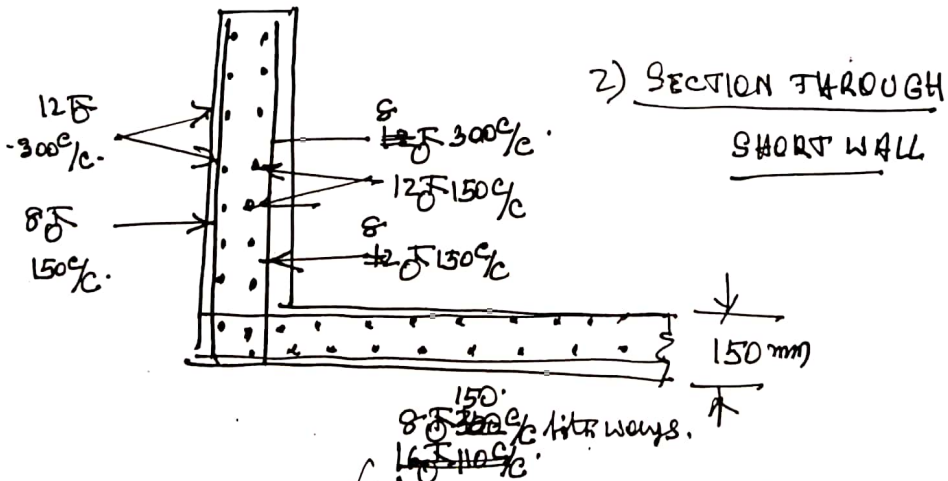 2) SECTION THROUGH
SHORT WALL
12Ŧ
300 c/c.
8Ŧ
150 c/c.
8
12Ŧ 300 c/c.
12Ŧ 150 c/c
8
12Ŧ 150 c/c
150 mm
150
8Ŧ 300 c/c both ways.
16Ŧ 110 c/c.